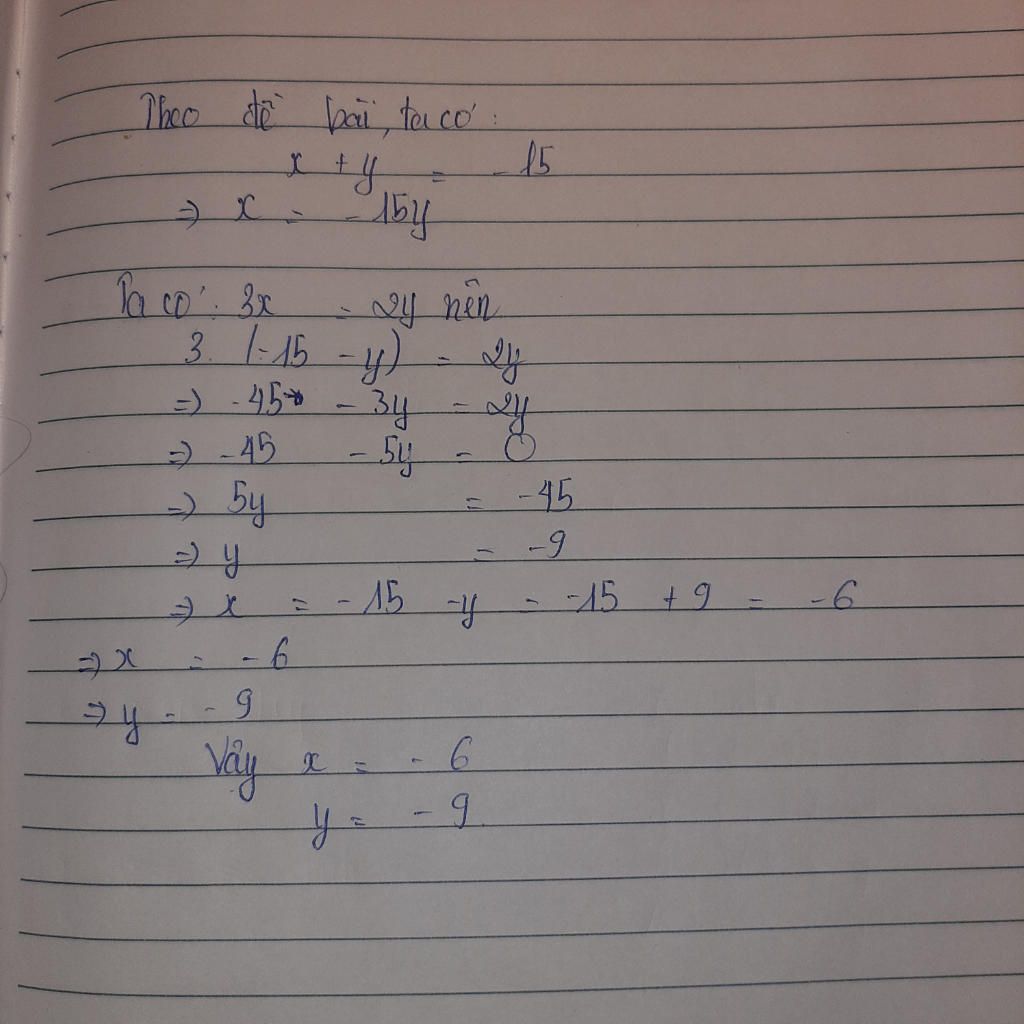 Theo đề bài, ta có:
x + y = -15
=> x = -15y
Ta có: 3x = 2y nên
3. (-15 - y) = 2y
=> -45 - 3y = 2y
=> -45 - 5y = 0
=> 5y = -45
=> y = -9
=> x = -15 -y = -15 + 9 = -6
=> x = -6
=> y = -9
Vậy x = -6
y = -9